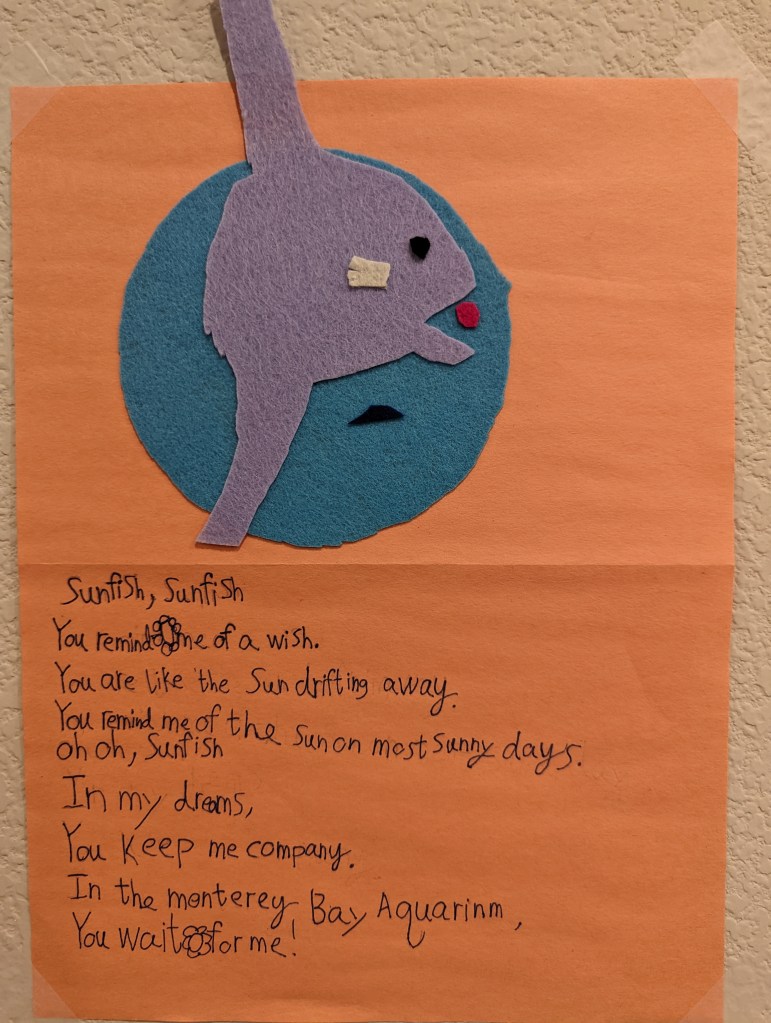 Sunfish, Sunfish
You remind me of a wish.
You are like the Sun drifting away.
You remind me of the sun on most sunny days.
oh oh, Sunfish
In my dreams,
You keep me company.
In the monterey Bay Aquarinm,
You wait for me!